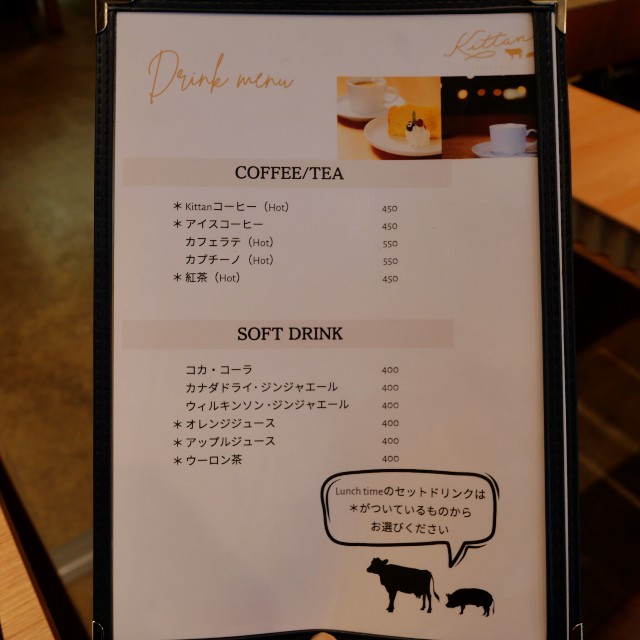 Kittan
Drink menu
COFFEE/TEA
＊Kittanコーヒー（Hot） 450
＊アイスコーヒー 450
カフェラテ（Hot） 550
カプチーノ（Hot） 550
＊紅茶（Hot） 450
SOFT DRINK
コカ・コーラ 400
カナダドライ・ジンジャエール 400
ウィルキンソン・ジンジャエール 400
＊オレンジジュース 400
＊アップルジュース 400
＊ウーロン茶 400
Lunch timeのセットドリンクは
＊がついているものから
お選びください